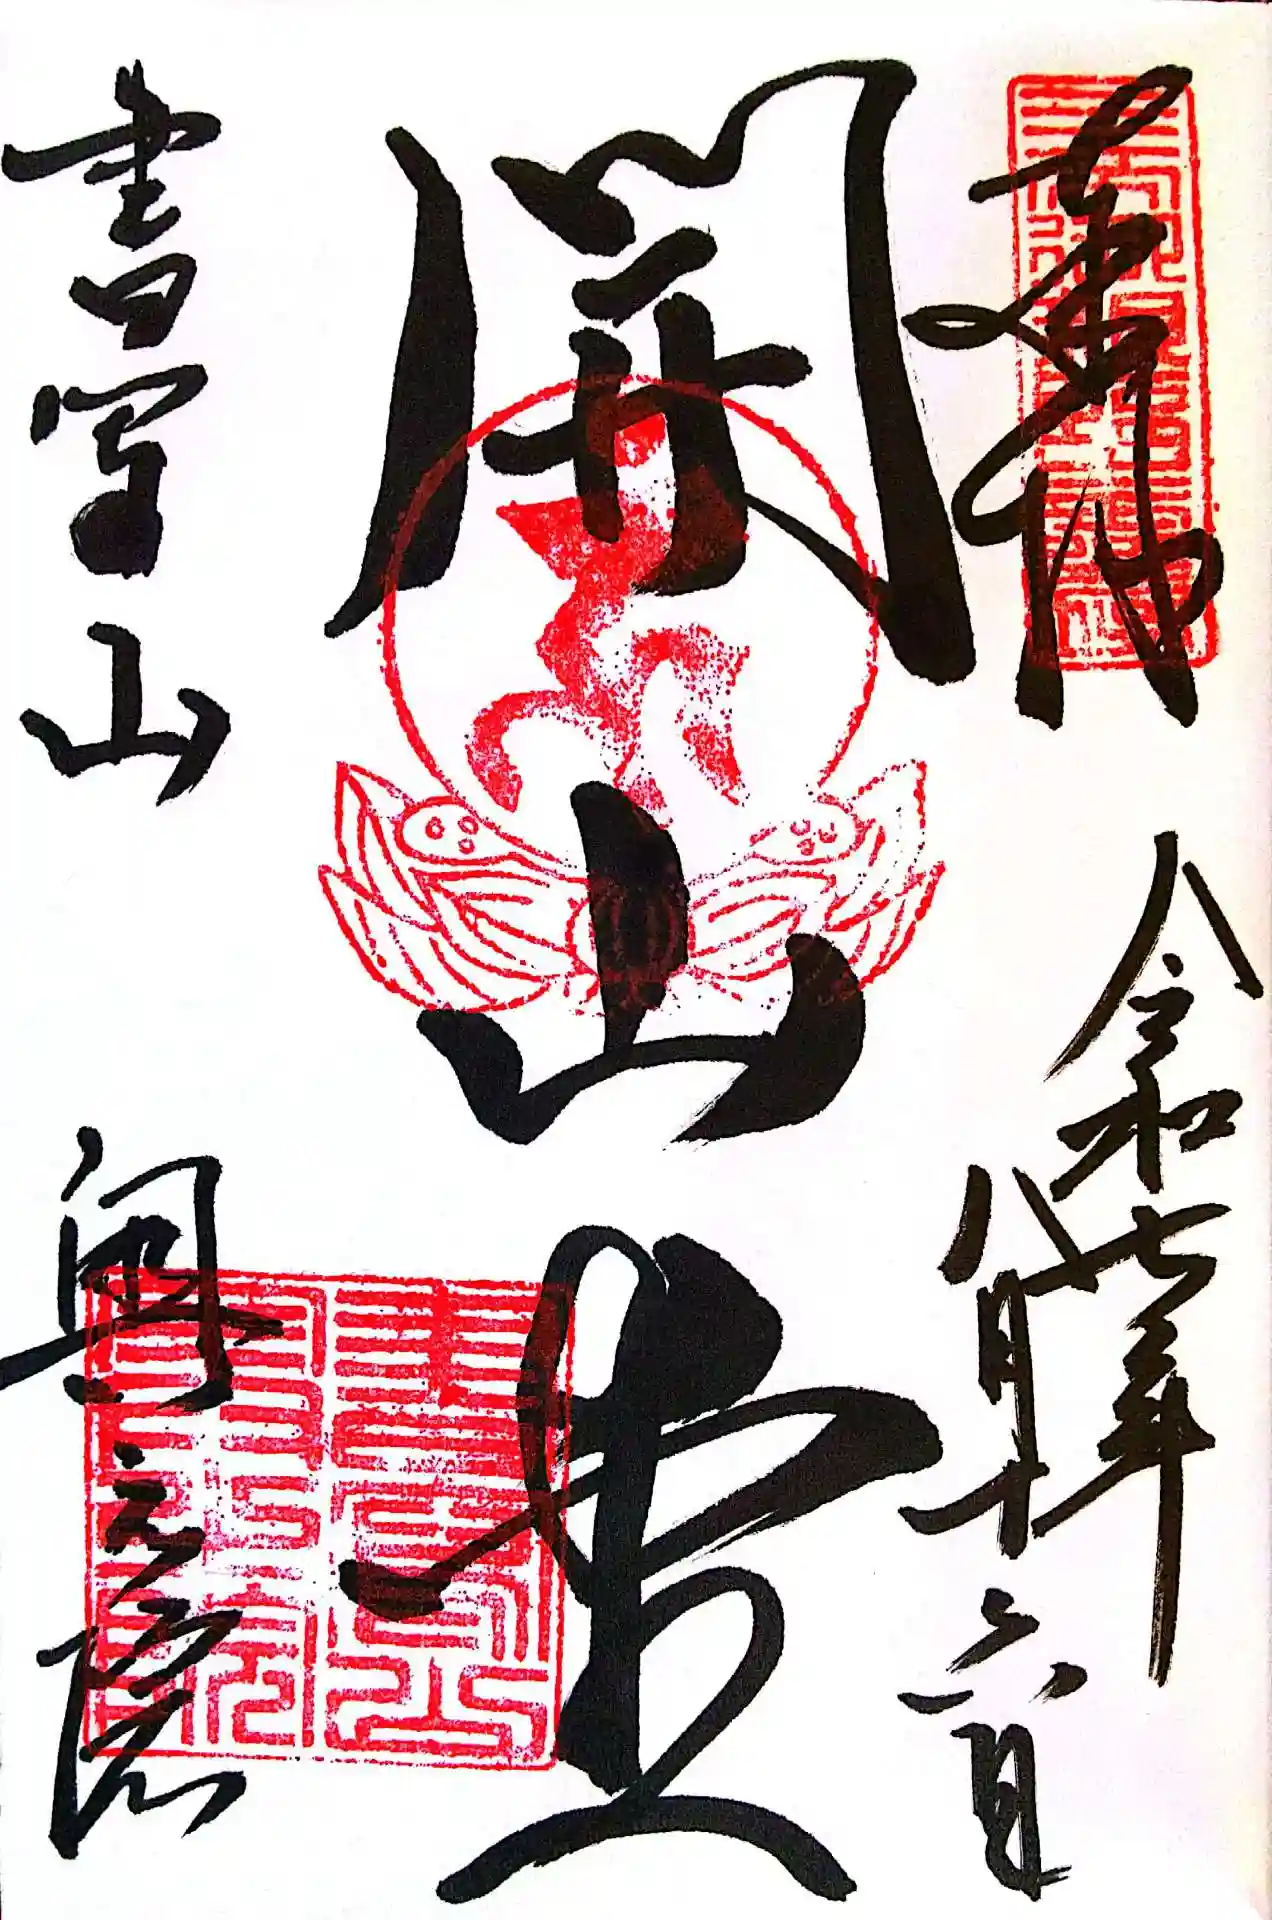 奉拝
令和七年
八月十六日
開山堂
書寫山
奥之院